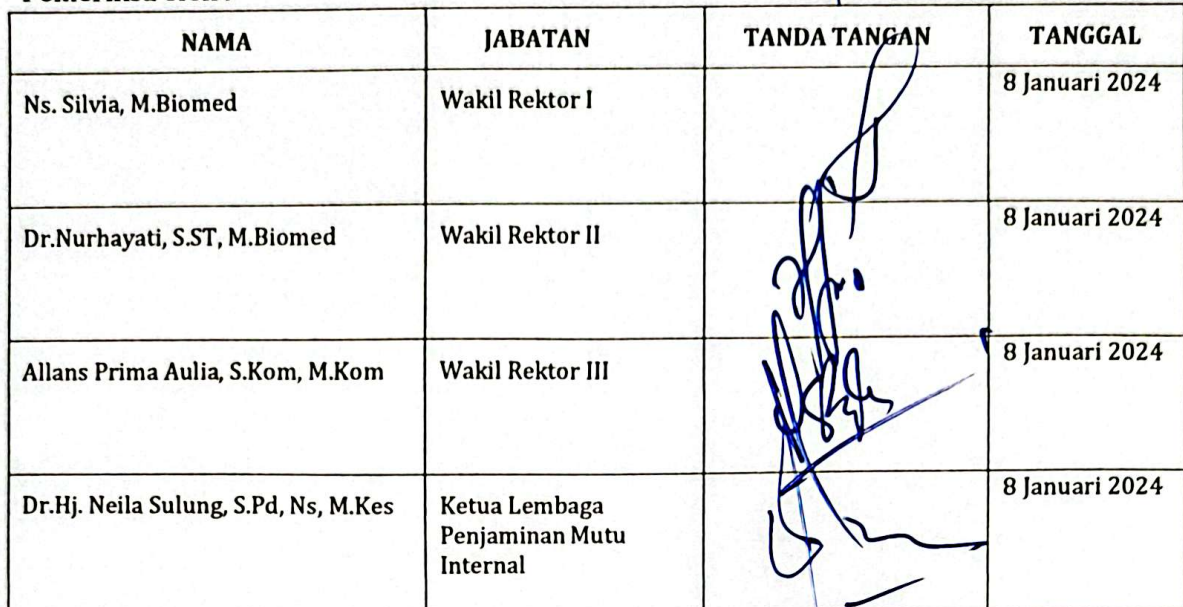 NAMA JABATAN TANDA TANGAN TANGGAL
Ns. Silvia, M.Biomed Wakil Rektor I 8 Januari 2024
Dr.Nurhayati, S.ST, M.Biomed Wakil Rektor II 8 Januari 2024
Allans Prima Aulia, S.Kom, M.Kom Wakil Rektor III 8 Januari 2024
Dr.Hj. Neila Sulung, S.Pd, Ns, M.Kes Ketua Lembaga 8 Januari 2024
Penjaminan Mutu
Internal